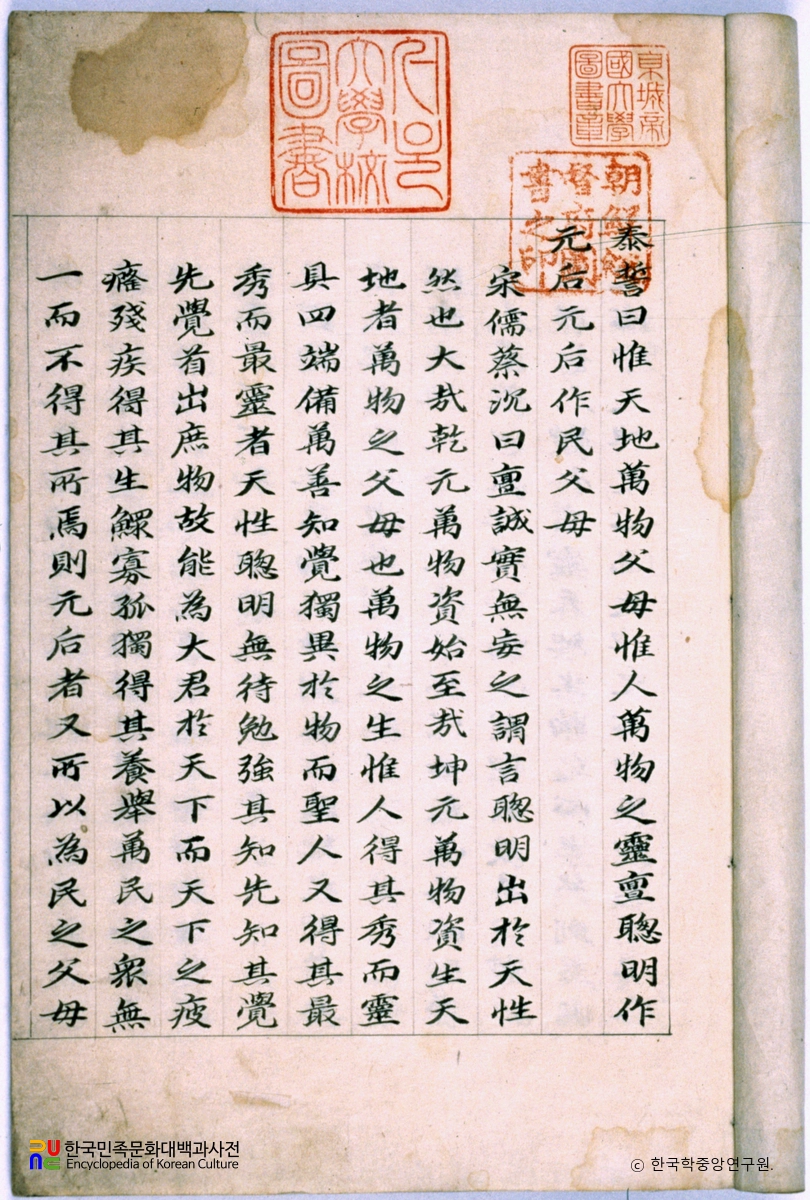 泰誓曰惟天地萬物父母惟人萬物之靈亶聰明作
元后元后作民父母
宋儒蔡沉曰亶誠實無妄之謂言聰明出於天性
然也大㢤乾元萬物資始至㢤坤元萬物資生天
地者萬物之父母也萬物之生惟人得其秀而靈
具四端備萬善知覺獨異於物而聖人又得其最
秀而最靈者天性聰明無待勉強其知先知其覺
先覺首出庶物故能為大君於天下而天下之疲
癃殘疾得其生鰥寡孤獨得其養舉萬民之衆無
一而不得其所焉則元后者又所以為民之父母
京城帝
國大學
圖書章
朝鮮總
督府圖
書之印
서울
大學校
圖書
한국민족문화대백과사전
Encyclopedia of Korean Culture
© 한국학중앙연구원.